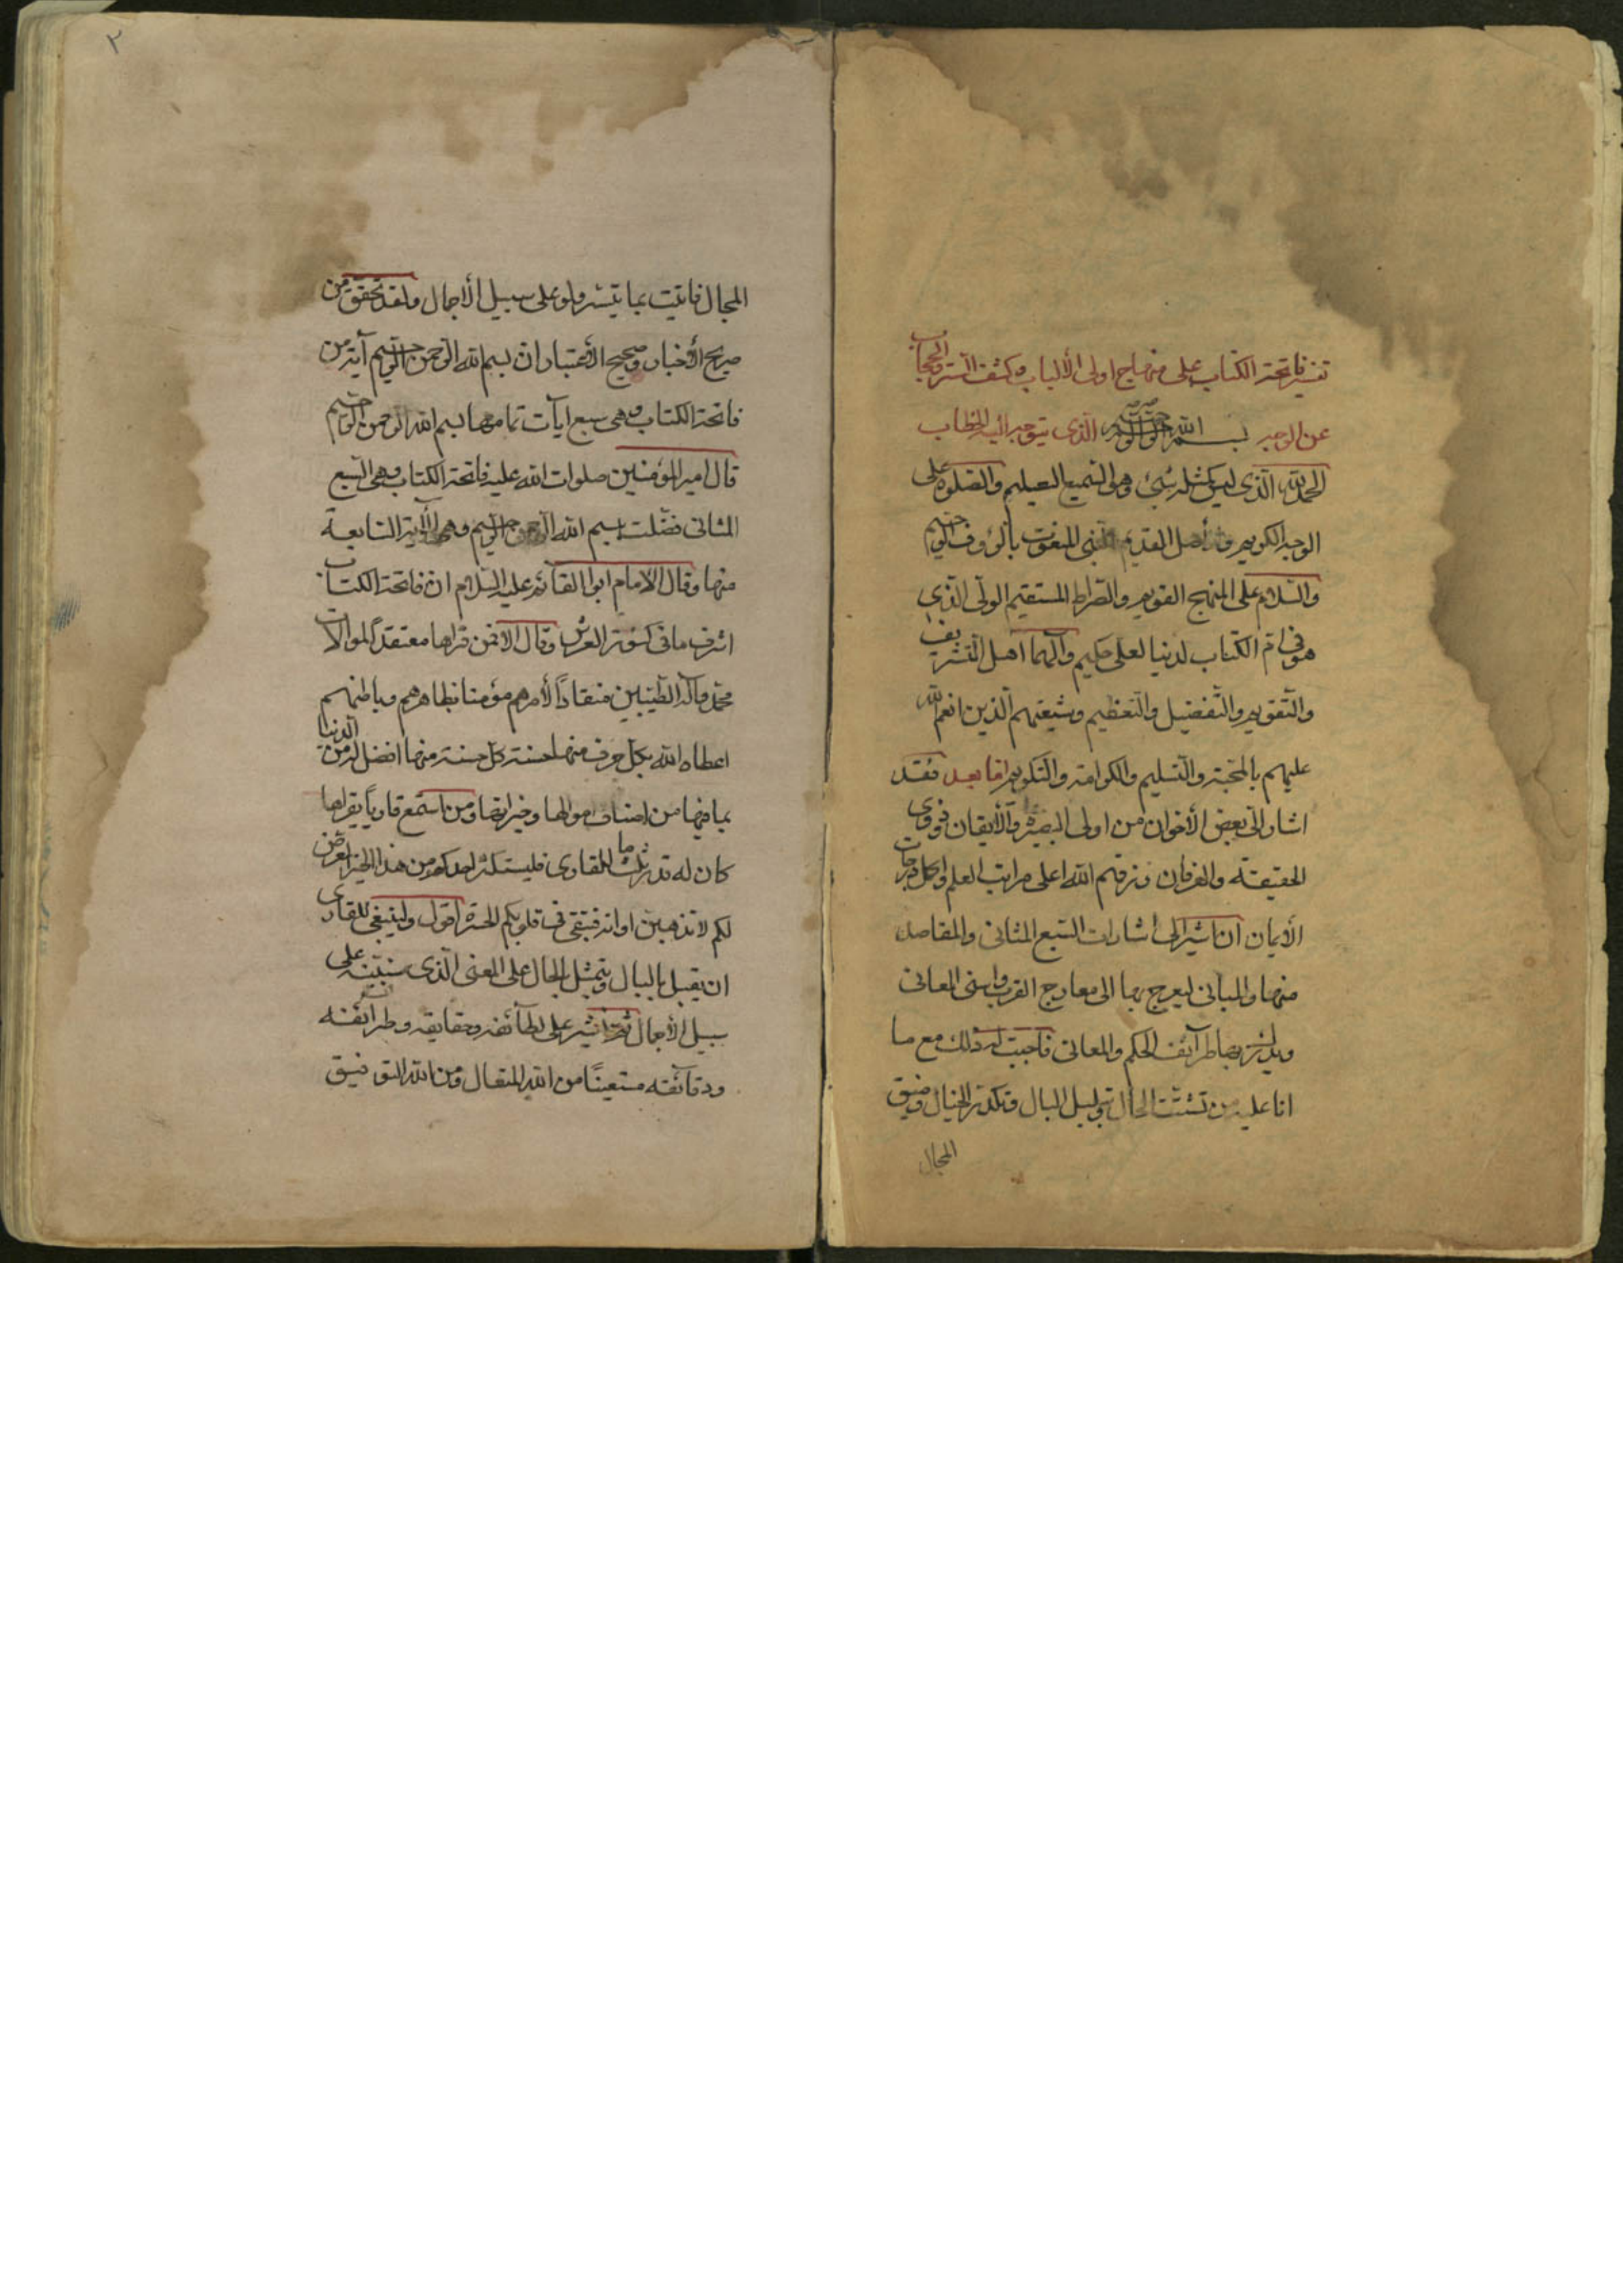 تفسير فاتحة الكتاب على منهاج اولى الألباب وكشف الستر والحجاب
عن الوجه بسم الله الرحمن الرحيم الذى يتوجه اليه الخطاب
الحمد لله الذى ليس كمثله شئ وهو السميع العليم والصلوة على
الوجه الكريم و اصل القديم النبى المنعوت بالرؤف الرحيم
والسلام على المنهج القويم والصراط المستقيم الولى الذى
هو فى ام الكتاب لدينا لعلى حكيم وآلهما اهل التشريف
والتقويم والتفضيل والتعظيم وشيعتهم الذين انعم الله
عليهم بالمحبة والتسليم والكرامة والتكريم اما بعد فقد
اشار الى بعض الأخوان من اولى البصيرة والأيقان وذوى
الحقيقة والعرفان رزقهم الله اعلى مراتب العلم واكمل درجات
الأيمان ان اشير الى اشارات السبع المثانى والمقاصد
منها والمبانى ليعرج بها الى معارج القرب واسنى المعانى
ويدرك بها طرآئف الحكم والمعانى فاجبت له ذلك مع ما
انا عليه من تشتت الحال وتبلبل البال وتكدر الخيال وضيق
المجال
٢
المجال فاتيت بما يتيسر ولو على سبيل الأجمال ولقد تحقق من
صريح الأخبار وصحيح الأعتبار ان بسم الله الرحمن الرحيم آية من
فاتحة الكتاب وهى سبع ايآت تمامها بسم الله الرحمن الرحيم
قال امير المؤمنين صلوات الله عليه فاتحة الكتاب وهى السبع
المثانى فضلت ببسم الله الرحمن الرحيم وهى الآية السابعة
منها وقال الامام ابو القائم عليه السلام ان فاتحة الكتاب
اشرف ما فى كنوز العرش وقال الا فمن قراها معتقداً لموالات
محمد وآله الطيبين منقاداً لأمرهم مؤمنا بظاهرهم وباطنهم
اعطاه الله بكل حرف منها حسنة كل حسنة منها افضل له من الدنيا
بما فيها من اصناف اموالها وخيراتها ومن استمع قارياً يقراها
كان له قدر ثلث ما للقارى فليستكثر احدكم من هذا الخير المعرض
لكم لا تذهبن اوانه فتبقى فى قلوبكم الحسرة اقول ولينبغى للقارى
ان يقبل بالبال ويتمثل بالحال على المعنى الذى سنبينه على
سبيل الأجمال ثم انشير على لطآئفه وحقايقه وطرآئفه
ودقآئقه مستعيناً من الله المتعال ومن الله التوفيق